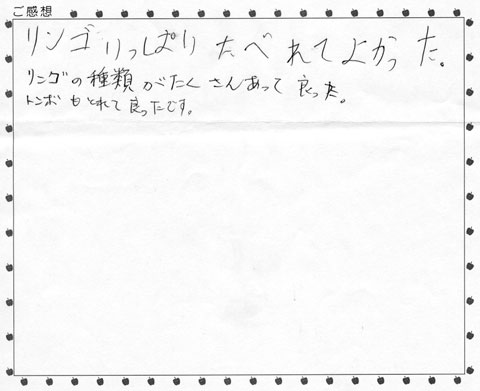 ご感想
リンゴいっぱい たべれてよかった。
リンゴの種類がたくさんあって良った。
トンボもとれて良ったです。